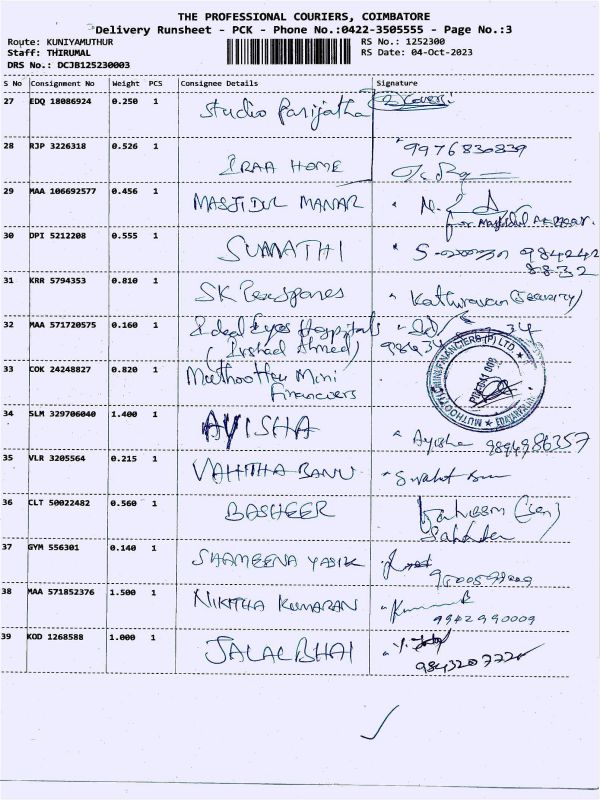 THE PROFESSIONAL COURIERS, COIMBATORE
Delivery Runsheet - PCK - Phone No.:0422-3505555 - Page No.:3
Route: KUNIYAMUTHUR RS No.: 1252300
Staff: THIRUMAL RS Date: 04-Oct-2023
DRS No.: DCJB125230003
S No Consignment No Weight PCS Consignee Details Signature
27 EDQ 18086924 0.250 1 Studio Parijatha
28 RJP 3226318 0.526 1 IRAA HOME 9976830839
29 MAA 106692577 0.456 1 MASJIDUL MANAR
30 DPI 5212208 0.555 1 SUMATHI 984242
8832
31 KRR 5794353 0.810 1 SK Kathiravan (Security)
32 MAA 571720575 0.160 1 Ideal Eyes Hospitals
(Irshad Ahmed)
33 COK 24248827 0.820 1 Muthoottu Mini
Financiers
34 SLM 329706040 1.400 1 AYISHA Ayisha 9894986357
35 VLR 3205564 0.215 1 VAHITHA BANU
36 CLT 50022482 0.560 1 BASHEER
37 GYM 556301 0.140 1 SHAMEENA YASIK
38 MAA 571852376 1.500 1 NIKITHA KUMARAN
9942990009
39 KOD 1268588 1.000 1 JALALBHAI